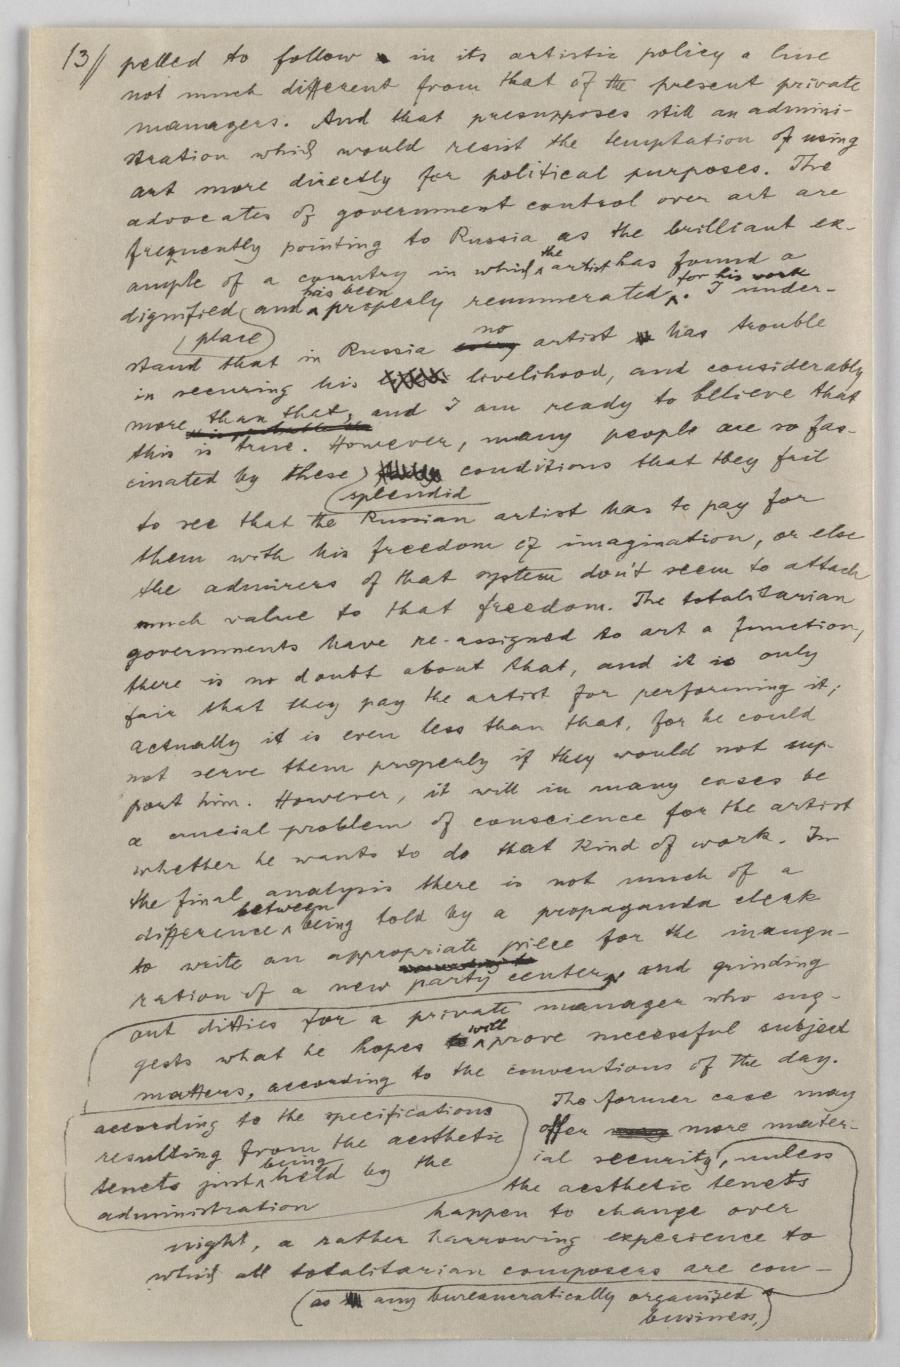 13// pelled to follow in its artistic policy a line
not much different from that of the present private
managers. And that presupposes still an admini-
stration which would resist the temptation of using
art more directly for political purposes. The
advocates of government control over art are
frequently pointing to Russia as the brilliant ex-
ample of a country in which the artist has found a
dignified place and has been properly remunerated for his work. I under-
stand that in Russia no artist has trouble
in securing his livelihood, and considerably
more than that, and I am ready to believe that
this is true. However, many people are so fas-
cinated by these splendid conditions that they fail
to see that the Russian artist has to pay for
them with his freedom of imagination, or else
the admirers of that system don't seem to attach
much value to that freedom. The totalitarian
governments have re-assigned to art a function,
there is no doubt about that, and it is only
fair that they pay the artist for performing it;
actually it is even less than that, for he could
not serve them properly if they would not sup-
port him. However, it will in many cases be
a crucial problem of conscience for the artist
whether he wants to do that kind of work. In
the final analysis there is not much of a
difference between being told by a propaganda clerk
to write an appropriate piece for the inaugu-
ration of a new party center and grinding
out ditties for a private manager who sug-
gests what he hopes will prove successful subject
matters, according to the conventions of the day.
according to the specifications
resulting from the aesthetic
tenets just being held by the
administration
The former case may
offer more mater-
ial security, unless
the aesthetic tenets
happen to change over
night, a rather harrowing experience to
which all totalitarian composers are con-
(as any bureaucratically organized
business,)